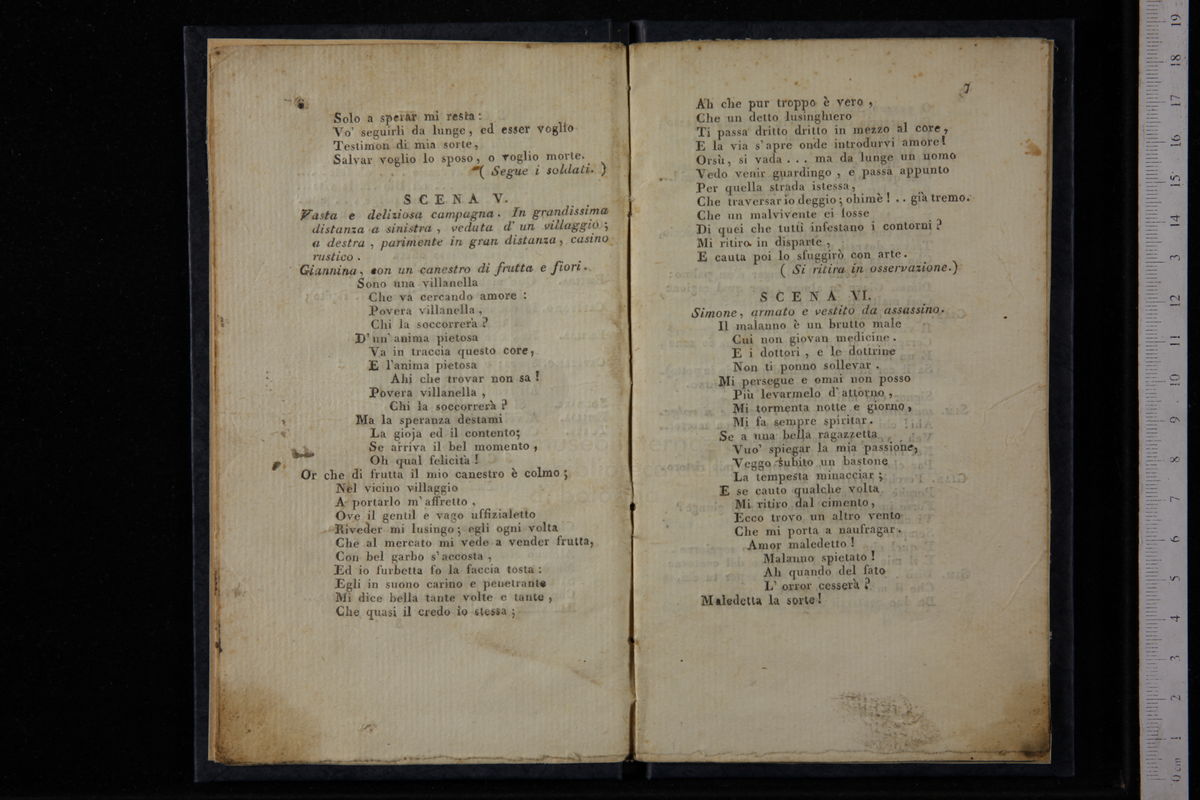 6
Solo a sperar mi resta :
Vo' seguirli da lunge, ed esser voglio
Testimon di mia sorte,
Salvar voglio lo sposo, o voglio morte.
( Segue i soldati. )
SCENA V.
Vasta e deliziosa campagna. In grandissima
distanza a sinistra, veduta d'un villaggio ;
a destra, parimente in gran distanza, casino
rustico.
Giannina, con un canestro di frutta e fiori.
Sono una villanella
Che va cercando amore :
Povera villanella,
Chi la soccorrerà ?
D'un' anima pietosa
Va in traccia questo core,
E l'anima pietosa
Ahi che trovar non sa !
Povera villanella,
Chi la soccorrerà ?
Ma la speranza destami
La gioja ed il contento;
Se arriva il bel momento,
Oh qual felicità !
Or che di frutta il mio canestro è colmo ;
Nel vicino villaggio
A portarlo m'affretto,
Ove il gentil e vago uffizialetto
Riveder mi lusingo; egli ogni volta
Che al mercato mi vede a vender frutta,
Con bel garbo s'accosta,
Ed io furbetta fo la faccia tosta :
Egli in suono carino e penetrante
Mi dice bella tante volte e tante,
Che quasi il credo io stessa ;
7
Ah che pur troppo è vero,
Che un detto lusinghiero
Ti passa dritto dritto in mezzo al core,
E la via s'apre onde introdurvi amore!
Orsù, si vada . . . ma da lunge un uomo
Vedo venir guardingo, e passa appunto
Per quella strada istessa,
Che traversar io deggio; ohimè ! . . già tremo.
Che un malvivente ei fosse
Di quei che tutti infestano i contorni ?
Mi ritiro in disparte,
E cauta poi lo sfuggirò con arte.
( Si ritira in osservazione.)
SCENA VI.
Simone, armato e vestito da assassino.
Il malanno è un brutto male
Cui non giovan medicine.
E i dottori, e le dottrine
Non ti ponno sollevar.
Mi persegue e omai non posso
Più levarmelo d'attorno,
Mi tormenta notte e giorno,
Mi fa sempre spiritar.
Se a una bella ragazzetta
Vuo' spiegar la mia passione,
Veggo subito un bastone
La tempesta minacciar ;
E se cauto qualche volta
Mi ritiro dal cimento,
Ecco trovo un altro vento
Che mi porta a naufragar.
Amor maledetto !
Malanno spietato !
Ah quando del fato
L'orror cesserà ?
Maledetta la sorte !
0 cm 1 2 3 4 5 6 7 8 9 10 11 12 13 14 15 16 17 18 19